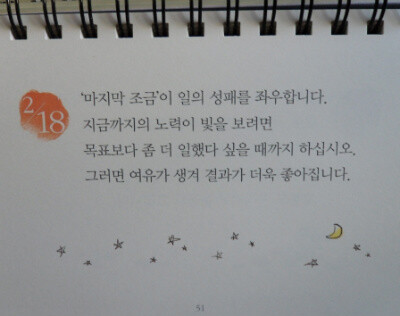 2/18
'마지막 조금'이 일의 성패를 좌우합니다.
지금까지의 노력이 빛을 보려면
목표보다 좀 더 일했다 싶을 때까지 하십시오.
그러면 여유가 생겨 결과가 더욱 좋아집니다.
51